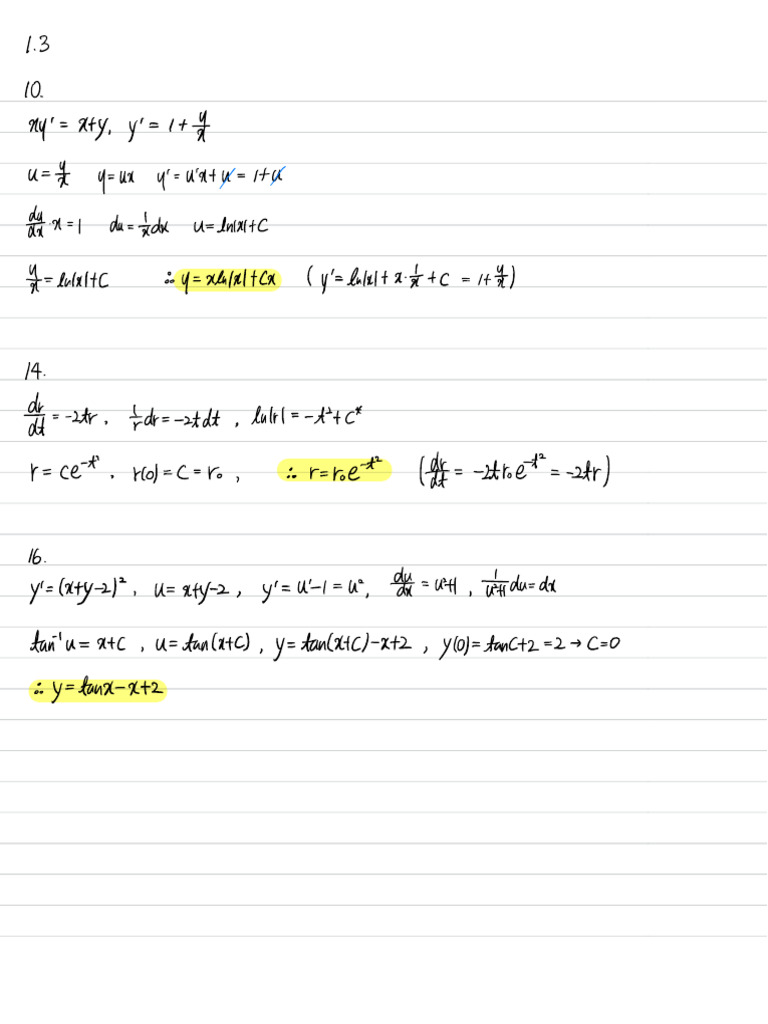 1.3
10.
xy' = x+y, y' = 1 + y/x
u = y/x y = ux y' = u'x + u = 1 + u
du/dx · x = 1 du = 1/x dx u = ln|x| + C
y/x = ln|x| + C ∴ y = xln|x| + Cx ( y' = ln|x| + x · 1/x + C = 1 + y/x )
14.
dr/dt = -2tr, 1/r dr = -2t dt, ln|r| = -t² + C*
r = ce^(-t²), r(0) = C = r₀, ∴ r = r₀e^(-t²) ( dr/dt = -2tr₀e^(-t²) = -2tr )
16.
y' = (x+y-2)², u = x+y-2, y' = u'-1 = u², du/dx = u²+1, 1/(u²+1) du = dx
tan⁻¹u = x+C, u = tan(x+C), y = tan(x+C)-x+2, y(0) = tanC+2 = 2 → C=0
∴ y = tanx-x+2